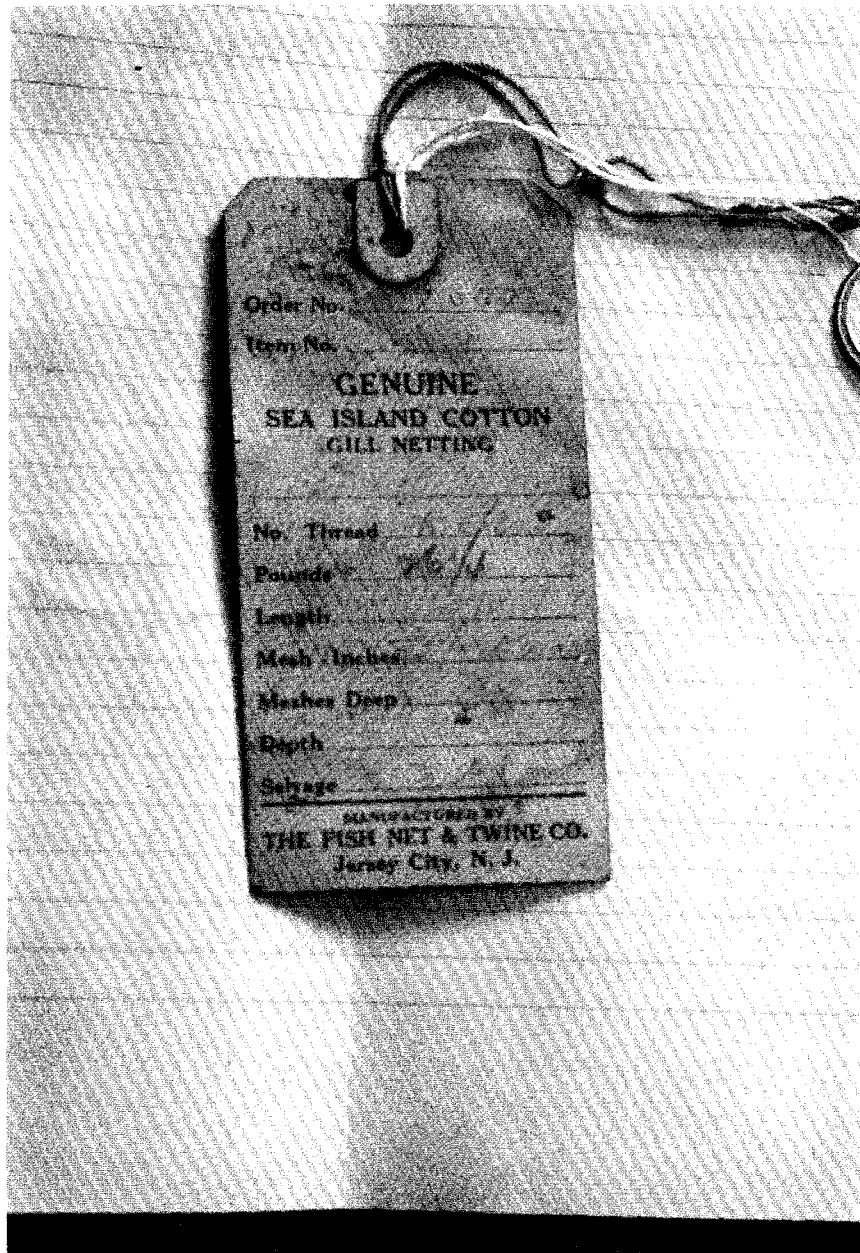 Order No.
Item No.
GENUINE
SEA ISLAND COTTON
GILL NETTING
No. Thread
Pounds 26 1/4
Length
Mesh Inches
Meshes Deep
Depth
Selvage
MANUFACTURED BY
THE FISH NET & TWINE CO.
Jersey City, N. J.